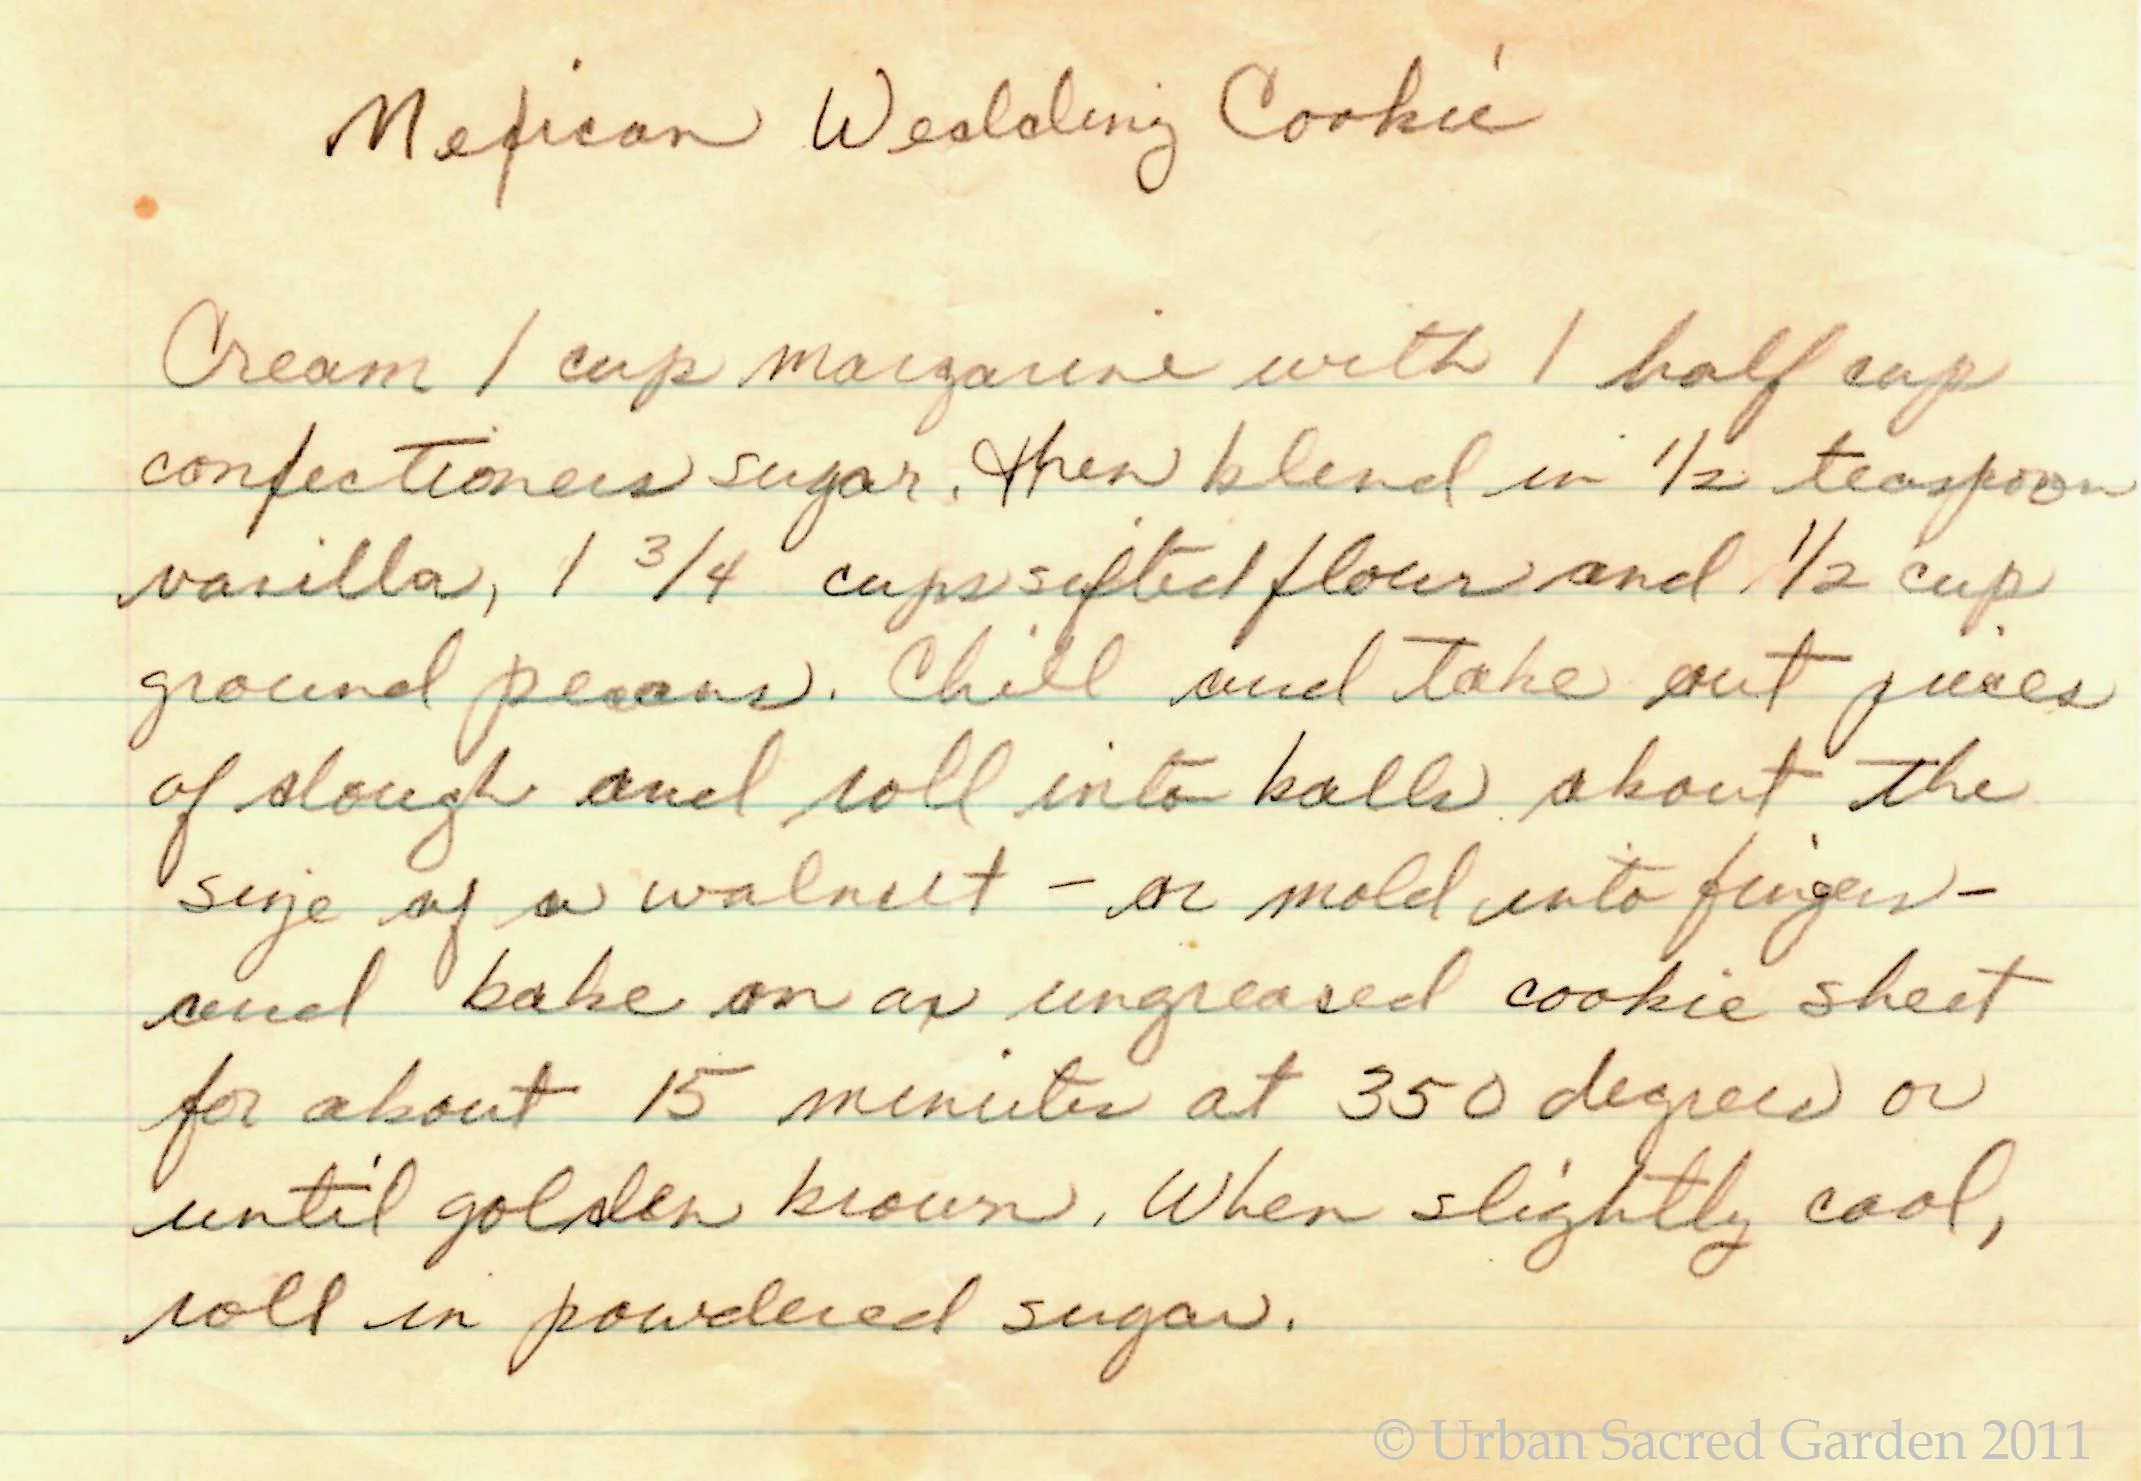 Mexican Wedding Cookie
Cream 1 cup margarine with 1 half cup
confectioners sugar. Then blend in 1/2 teaspoon
vanilla, 1 3/4 cups sifted flour and 1/2 cup
ground pecans. Chill and take out pieces
of dough and roll into balls about the
size of a walnut - or mold into fingers -
and bake on an ungreased cookie sheet
for about 15 minutes at 350 degrees or
until golden brown. When slightly cool,
roll in powdered sugar.
© Urban Sacred Garden 2011